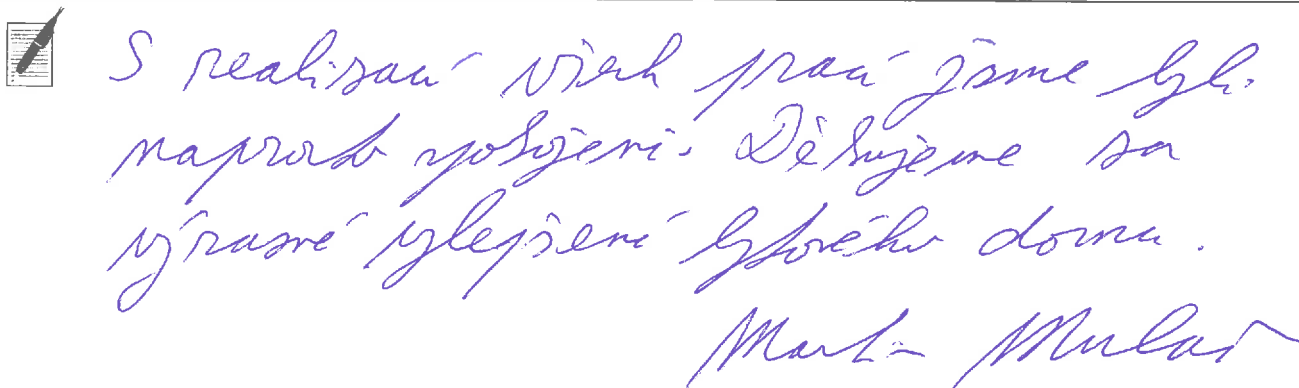 S realizací všech prací jsme byli
naprosto spokojeni. Děkujeme za
výrazné vylepšení bytového domu.
Martin